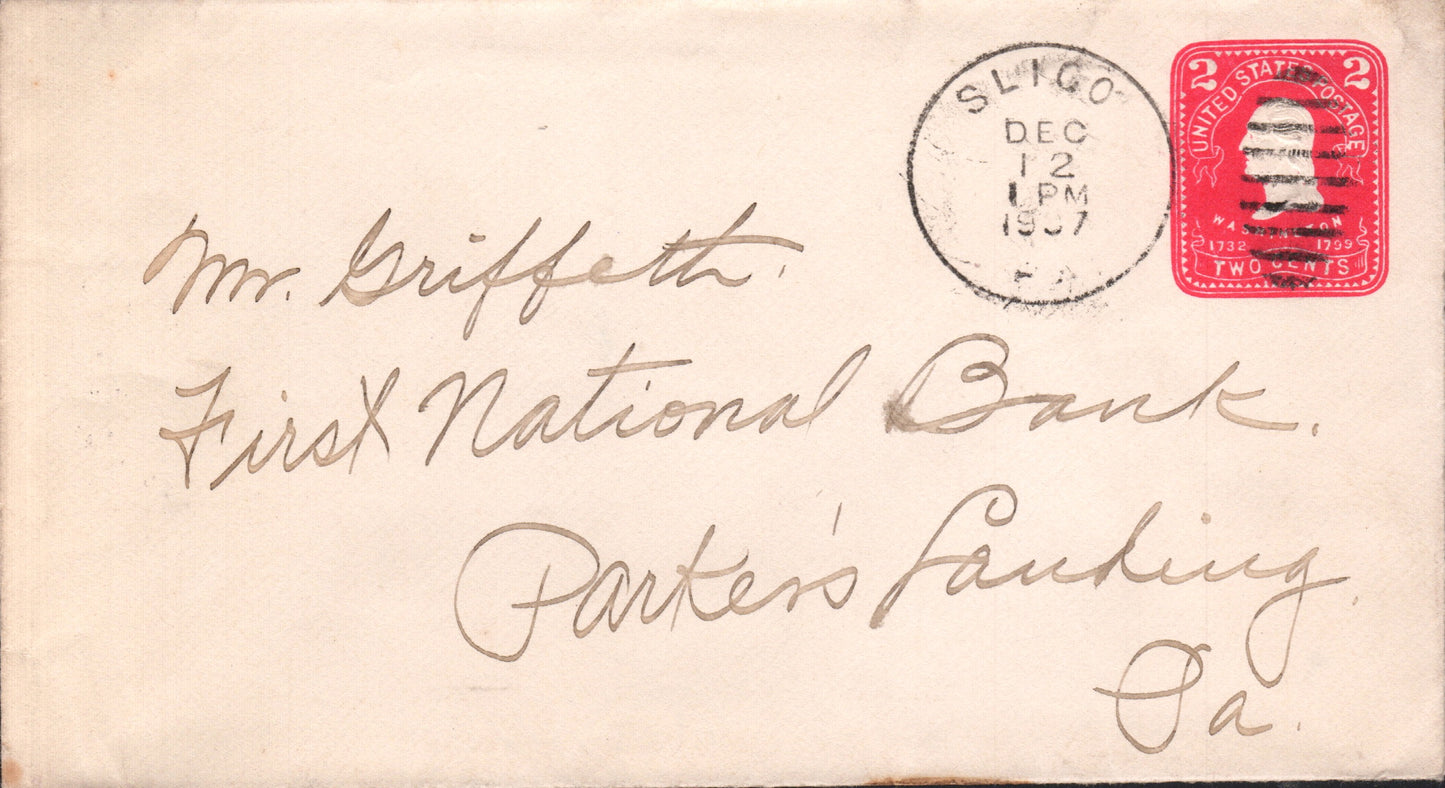 SLIGO
DEC
12
1 PM
1907
PA
2 2
UNITED STATES POSTAGE
WASHINGTON
1732 1799
TWO CENTS
Mr. Griffeth.
First National Bank.
Parker's Landing,
Pa.